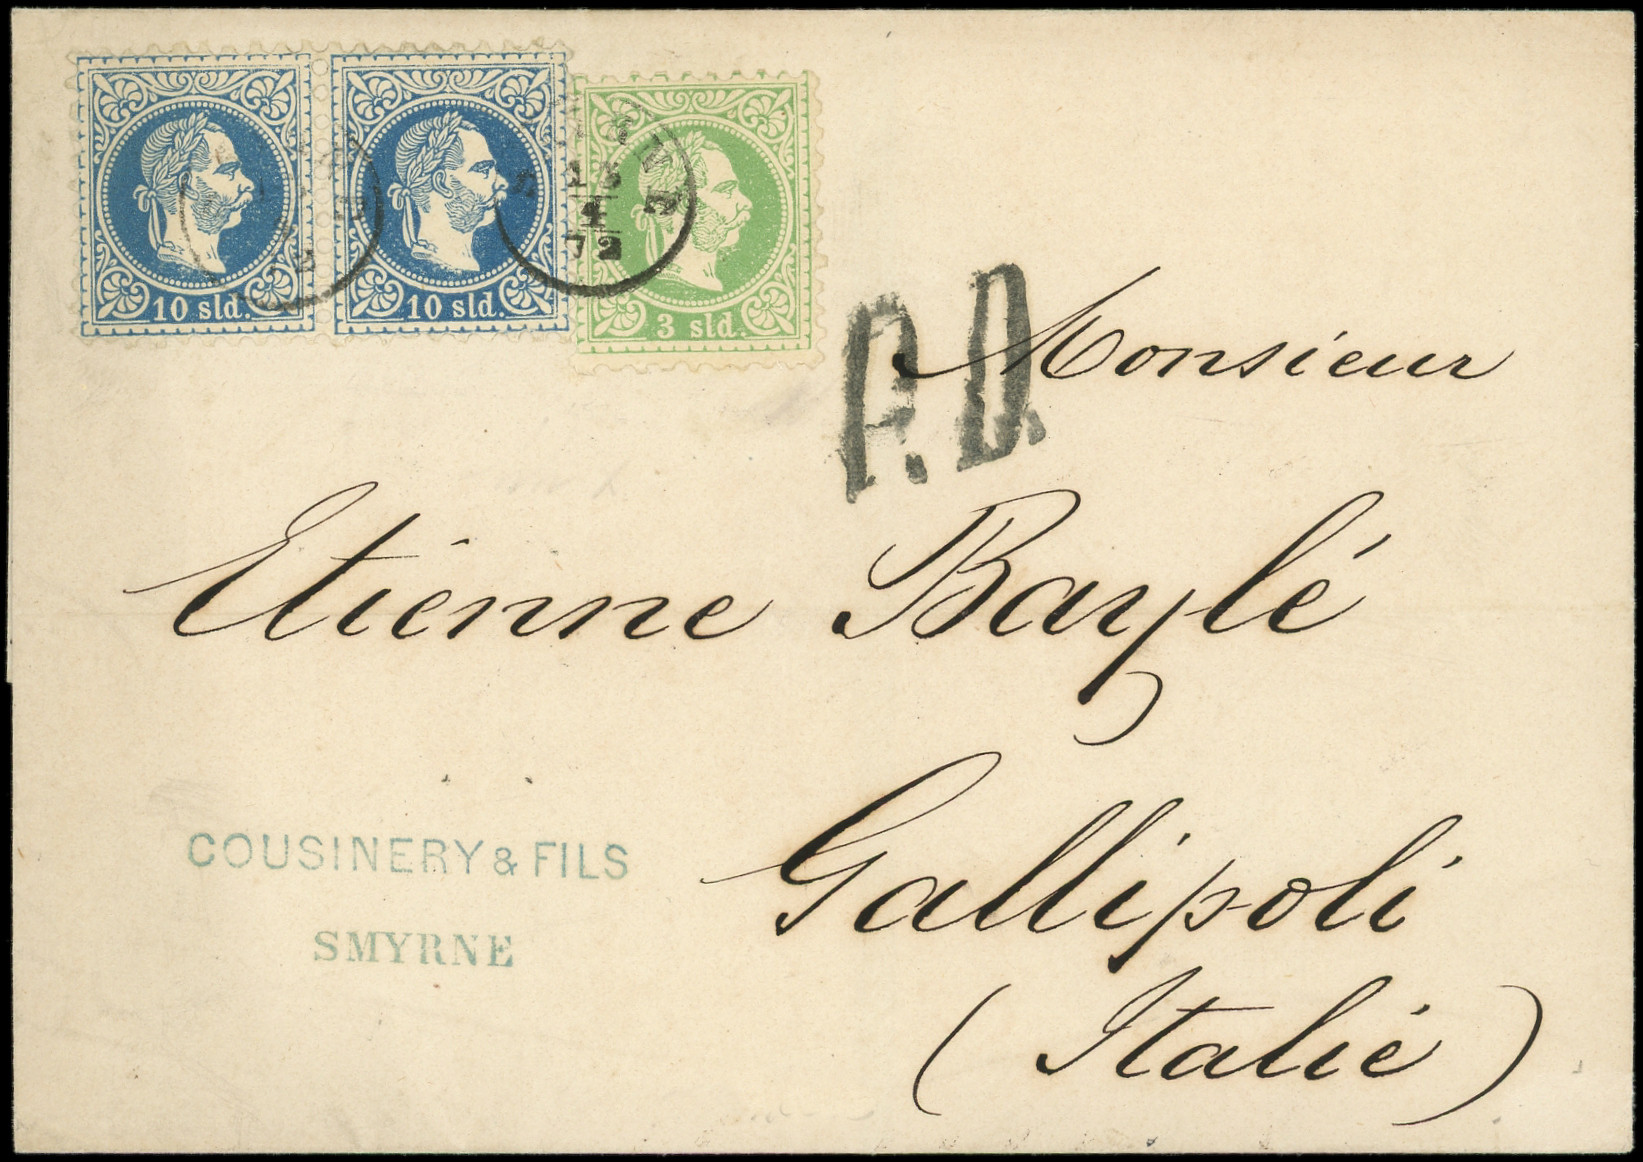 10 sld.
10 sld.
3 sld.
13
4
72
P.D.
Monsieur
Etienne Baylé
Gallipoli
(Italie)
COUSINERY & FILS
SMYRNE